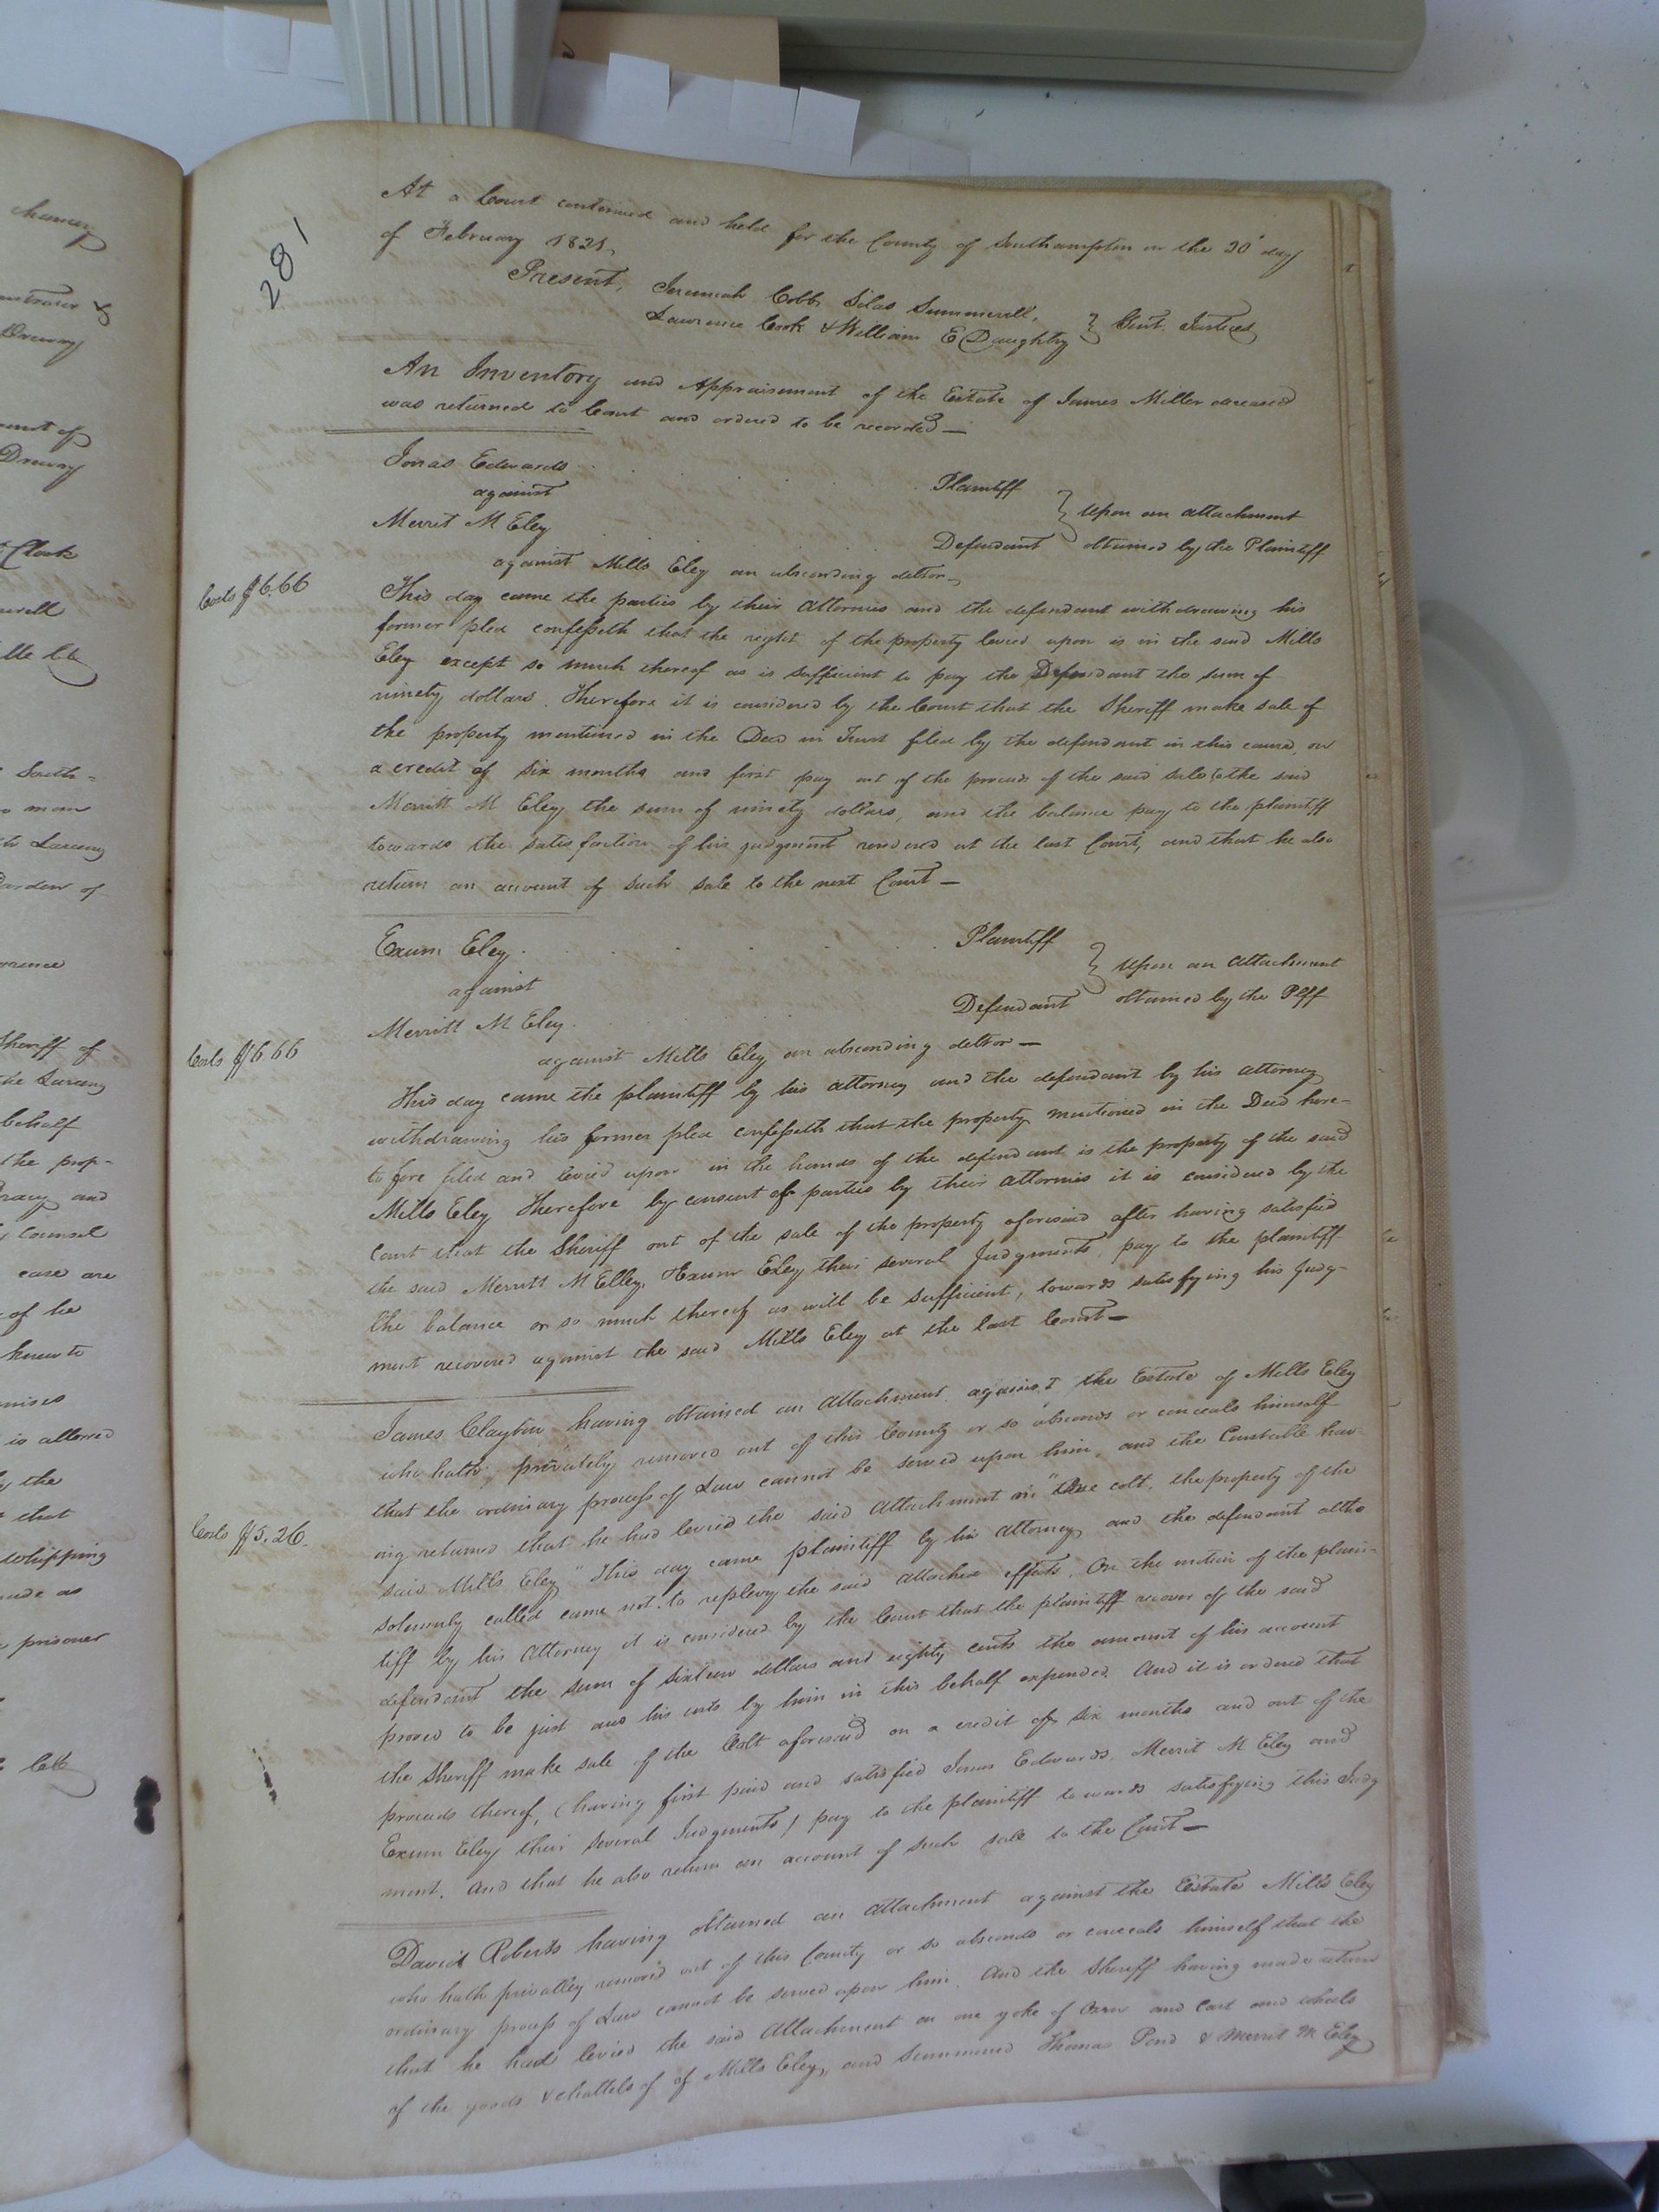 chancery
Drewry
Drewry
Clark
South=
man
Larceny
Sheriff of
the Larceny
behalf
the prop-
and
Counsel
case are
of he
knew to
is allowed
the
that
whipping
made as
prisoner
281
At a Court continued and held for the County of Southampton on the 20th day
of February 1821,
Present, Jeremiah Cobb, Silas Summerell,
Lawrence Cook & William E Daughtry } Gent. Justices
An Inventory and Appraisement of the Estate of James Miller deceased
was returned to Court and ordered to be recorded —
Jonas Edwards . . . . . Plaintiff
against } Upon an attachment
Merrit M Eley . . . . . Defendant obtained by the Plaintiff
against Mills Eley an absconding debtor —
Costs $6.66
This day came the parties by their Attornies and the defendant withdrawing his
former plea confesseth that the right of the property levied upon is in the said Mills
Eley except so much thereof as is sufficient to pay the Defendant the sum of
ninety dollars. Therefore it is considered by the Court that the Sheriff make sale of
the property mentioned in the Deed in Trust filed by the defendant in this cause, on
a credit of six months and first pay out of the proceeds of the said sale to the said
Merritt M Eley the sum of ninety dollars, and the balance pay to the plaintiff
towards the satisfaction of his judgment rendered at the last Court, and that he also
return an account of such sale to the next Court —
Exum Eley . . . . . Plaintiff
against } Upon an Attachment
Merritt M Eley . . . . . Defendant obtained by the Plff
against Mills Eley an absconding debtor —
Costs $6.66
This day came the plaintiff by his attorney and the defendant by his attorney
withdrawing his former plea confesseth that the property mentioned in the Deed here-
tofore filed and levied upon in the hands of the defendant is the property of the said
Mills Eley Therefore by consent of parties by their Attornies it is considered by the
Court that the Sheriff out of the sale of the property aforesaid after having satisfied
the said Merritt M Elley, & Exum Eley their several Judgments, pay to the plaintiff
the balance or so much thereof as will be sufficient, towards satisfying his Judg-
ment recovered against the said Mills Eley at the last Court —
James Clayton having obtained an Attachment against the Estate of Mills Eley
who hath privately removed out of this County or so absconds or conceals himself
that the ordinary process of Law cannot be served upon him, and the Constable hav-
ing returned that he had levied the said Attachment on "One colt, the property of the
Costs $5.26.
said Mills Eley" This day came plaintiff by his Attorney and the defendant altho
solemnly called came not to replevy the said attached effects. On the motion of the plain-
tiff by his Attorney it is considered by the Court that the plaintiff recover of the said
defendant the sum of sixteen dollars and eighty cents the amount of his account
proved to be just and his costs by him in this behalf expended. And it is ordered that
the Sheriff make sale of the Colt aforesaid on a credit of six months and out of the
proceeds thereof, (having first paid and satisfied Jonas Edwards, Merrit M Eley and
Exum Eley their several Judgments) pay to the plaintiff towards satisfying this Judg
ment. And that he also return an account of such sale to the Court —
David Roberts having obtained an attachment against the Estate Mills Eley
who hath privatley removed out of this County or so absconds or conceals himself that the
ordinary process of Law cannot be served upon him. And the Sheriff having made return
that he had levied the said Attachment on one yoke of Oxen and Cart and wheels
of the goods & chattels of of Mills Eley, and Summoned Thomas Pond & Merrit M Eley